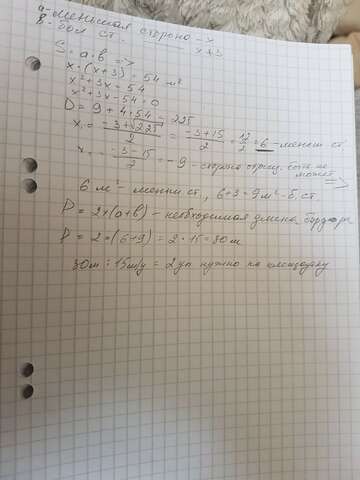 a-меньшая сторона - x
В-бол ст. x+3
S = a·b =>
x·(x+3) = 54 м²
x²+3x = 54
x²+3x-54=0
D = 9 + 4·54 = 225
x₁ = -3+√225 / 2 = -3+15 / 2 = 12/2 = 6 - меньш ст.
x = -3-15 / 2 = -9 - сторона отриц. быть не может =>
6 м² - меньш ст, 6+3=9 м² - б. ст.
P = 2×(a+b) = необходимая длина бордюра
P = 2×(6+9) = 2·15=30м
30м : 15м/у = 2 уп нужно на площадку